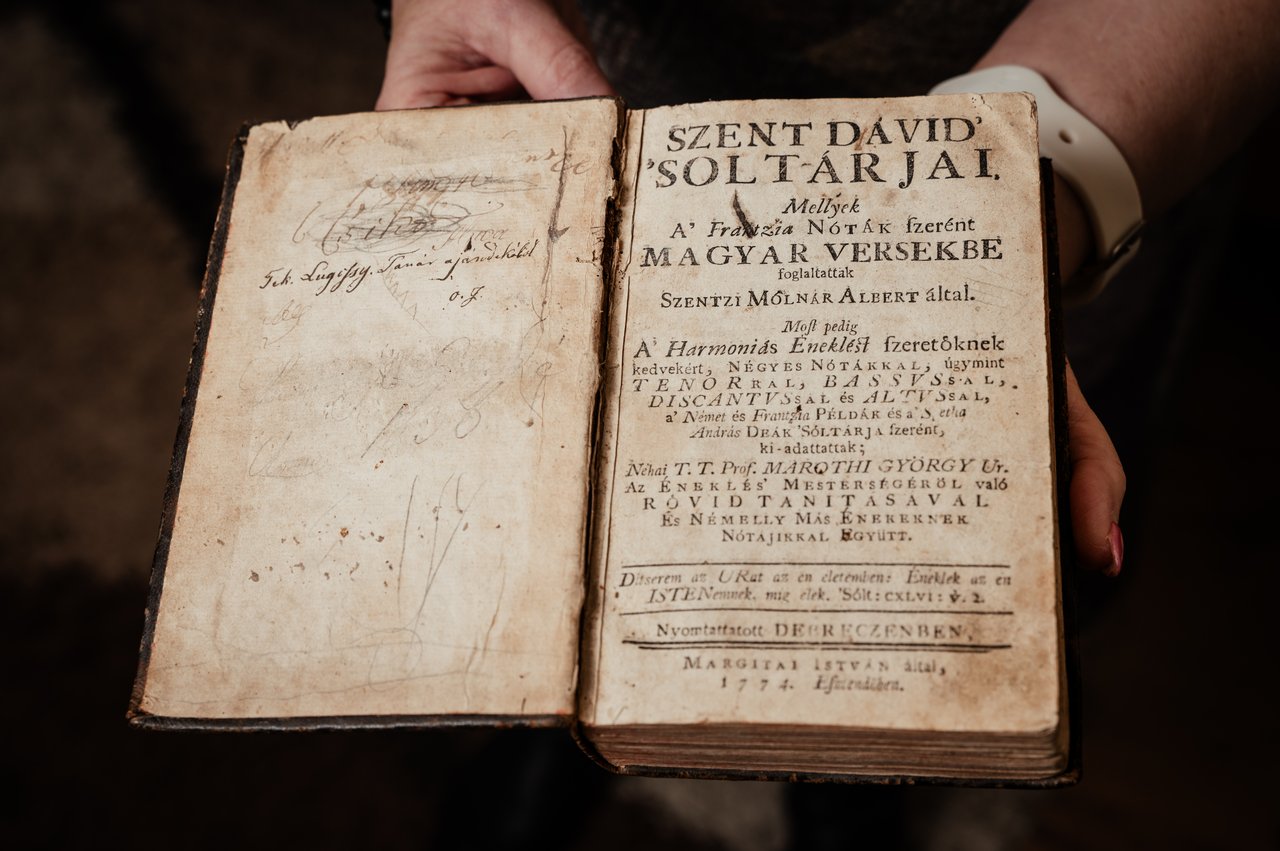 Tek. Lugossy. Tanár ajándékából
o. J.
SZENT DÁVID'
'SOLTÁRJAI.
Mellyek
A' Frantzia NÓTÁK ſzerént
MAGYAR VERSEKBE
foglaltattak
SZENTZI MOLNÁR ALBERT által.
Moſt pedig
A' Harmoniás Éneklést ſzeretőknek
kedvekért, NÉGYES NÓTÁKKAL, úgymint
TENORRAL, BASSUSSAL,
DISCANTVSSAL és ALTVSSAL,
a' Német és Frantzia PÉLDÁK és a'
András DEÁK 'SÓLTÁRJA ſzerént,
ki-adattattak;
Néhai T. T. Prof. MARÓTHI GYÖRGY Ur.
AZ ÉNEKLÉS' MESTERSÉGÉRŐL való
RÖVID TANITÁSÁVAL
ÉS NÉMELLY MÁS ÉNEKEKNEK
NÓTÁJIKKAL EGYÜTT.
Ditserem az URat az en eletemben: Éneklek az en
ISTENemnek, mig elek. 'Sólt: CXLVI: v. 2.
Nyomtattatott DEBRECZENBEN,
MARGITAI ISTVÁN által,
1774. Eſztendőben.